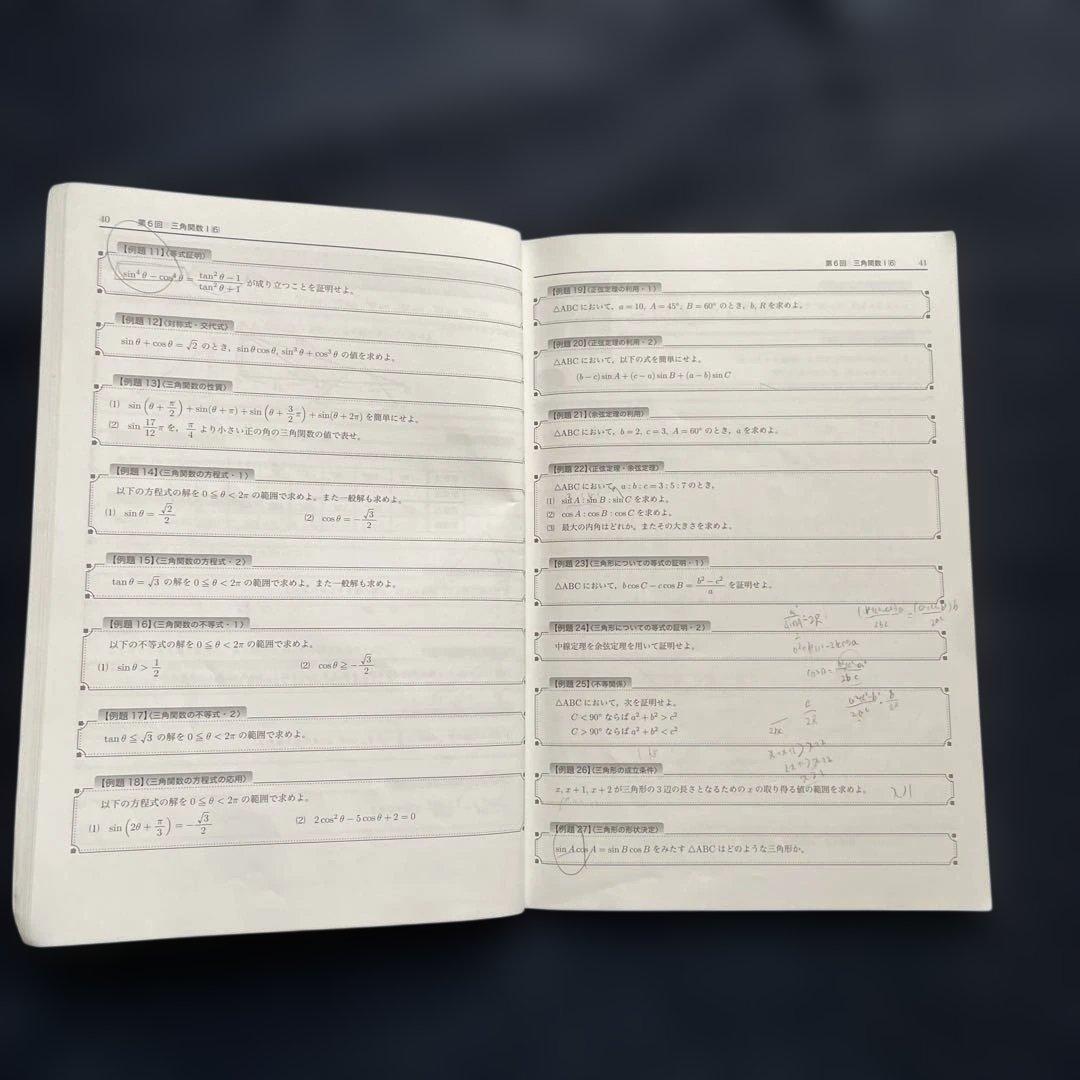 40 第6回 三角関数Ⅰ⑥
【例題 11】〈等式証明〉
sin⁴θ－cos⁴θ＝(tan²θ－1)/(tan²θ＋1) が成り立つことを証明せよ。
【例題 12】〈対称式・交代式〉
sinθ＋cosθ＝√2 のとき，sinθcosθ, sin³θ＋cos³θ の値を求めよ。
【例題 13】〈三角関数の性質〉
(1) sin(θ＋π/2)＋sin(θ＋π)＋sin(θ＋3/2π)＋sin(θ＋2π) を簡単にせよ。
(2) sin 17/12 π を，π/4 より小さい正の角の三角関数の値で表せ。
【例題 14】〈三角関数の方程式・1〉
以下の方程式の解を 0≦θ＜2π の範囲で求めよ。また一般解も求めよ。
(1) sinθ＝√2/2 (2) cosθ＝－√3/2
【例題 15】〈三角関数の方程式・2〉
tanθ＝√3 の解を 0≦θ＜2π の範囲で求めよ。また一般解も求めよ。
【例題 16】〈三角関数の不等式・1〉
以下の不等式の解を 0≦θ＜2π の範囲で求めよ。
(1) sinθ＞1/2 (2) cosθ≧－√3/2
【例題 17】〈三角関数の不等式・2〉
tanθ≦√3 の解を 0≦θ＜2π の範囲で求めよ。
【例題 18】〈三角関数の方程式の応用〉
以下の方程式の解を 0≦θ＜2π の範囲で求めよ。
(1) sin(2θ＋π/3)＝－√3/2 (2) 2cos²θ－5cosθ＋2＝0
第6回 三角関数Ⅰ⑥ 41
【例題 19】〈正弦定理の利用・1〉
△ABC において，a＝10, A＝45°, B＝60° のとき，b, R を求めよ。
【例題 20】〈正弦定理の利用・2〉
△ABC において，以下の式を簡単にせよ。
(b－c)sin A＋(c－a)sin B＋(a－b)sin C
【例題 21】〈余弦定理の利用〉
△ABC において，b＝2, c＝3, A＝60° のとき，a を求めよ。
【例題 22】〈正弦定理・余弦定理〉
△ABC において，a : b : c＝3 : 5 : 7 のとき，
(1) sin A : sin B : sin C を求めよ。
(2) cos A : cos B : cos C を求めよ。
(3) 最大の内角はどれか。またその大きさを求めよ。
【例題 23】〈三角形についての等式の証明・1〉
△ABC において，b cos C－c cos B＝(b²－c²)/a を証明せよ。
【例題 24】〈三角形についての等式の証明・2〉
中線定理を余弦定理を用いて証明せよ。
【例題 25】〈不等関係〉
△ABC において，次を証明せよ。
C＜90° ならば a²＋b²＞c²
C＞90° ならば a²＋b²＜c²
【例題 26】〈三角形の成立条件〉
x, x＋1, x＋2 が三角形の3辺の長さとなるための x の取り得る値の範囲を求めよ。
x>1
【例題 27】〈三角形の形状決定〉
sin A cos A＝sin B cos B をみたす △ABC はどのような三角形か。